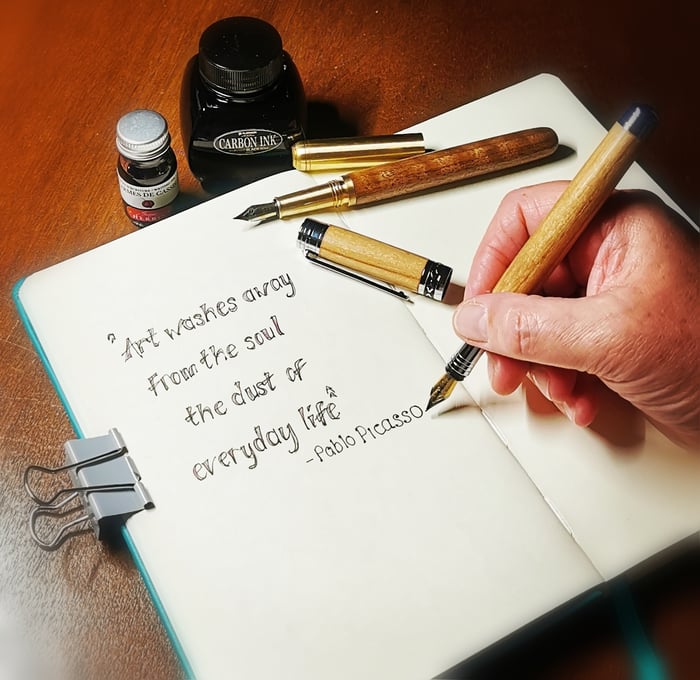 CARBON INK
"Art washes away
from the soul
the dust of
everyday life"
-Pablo Picasso